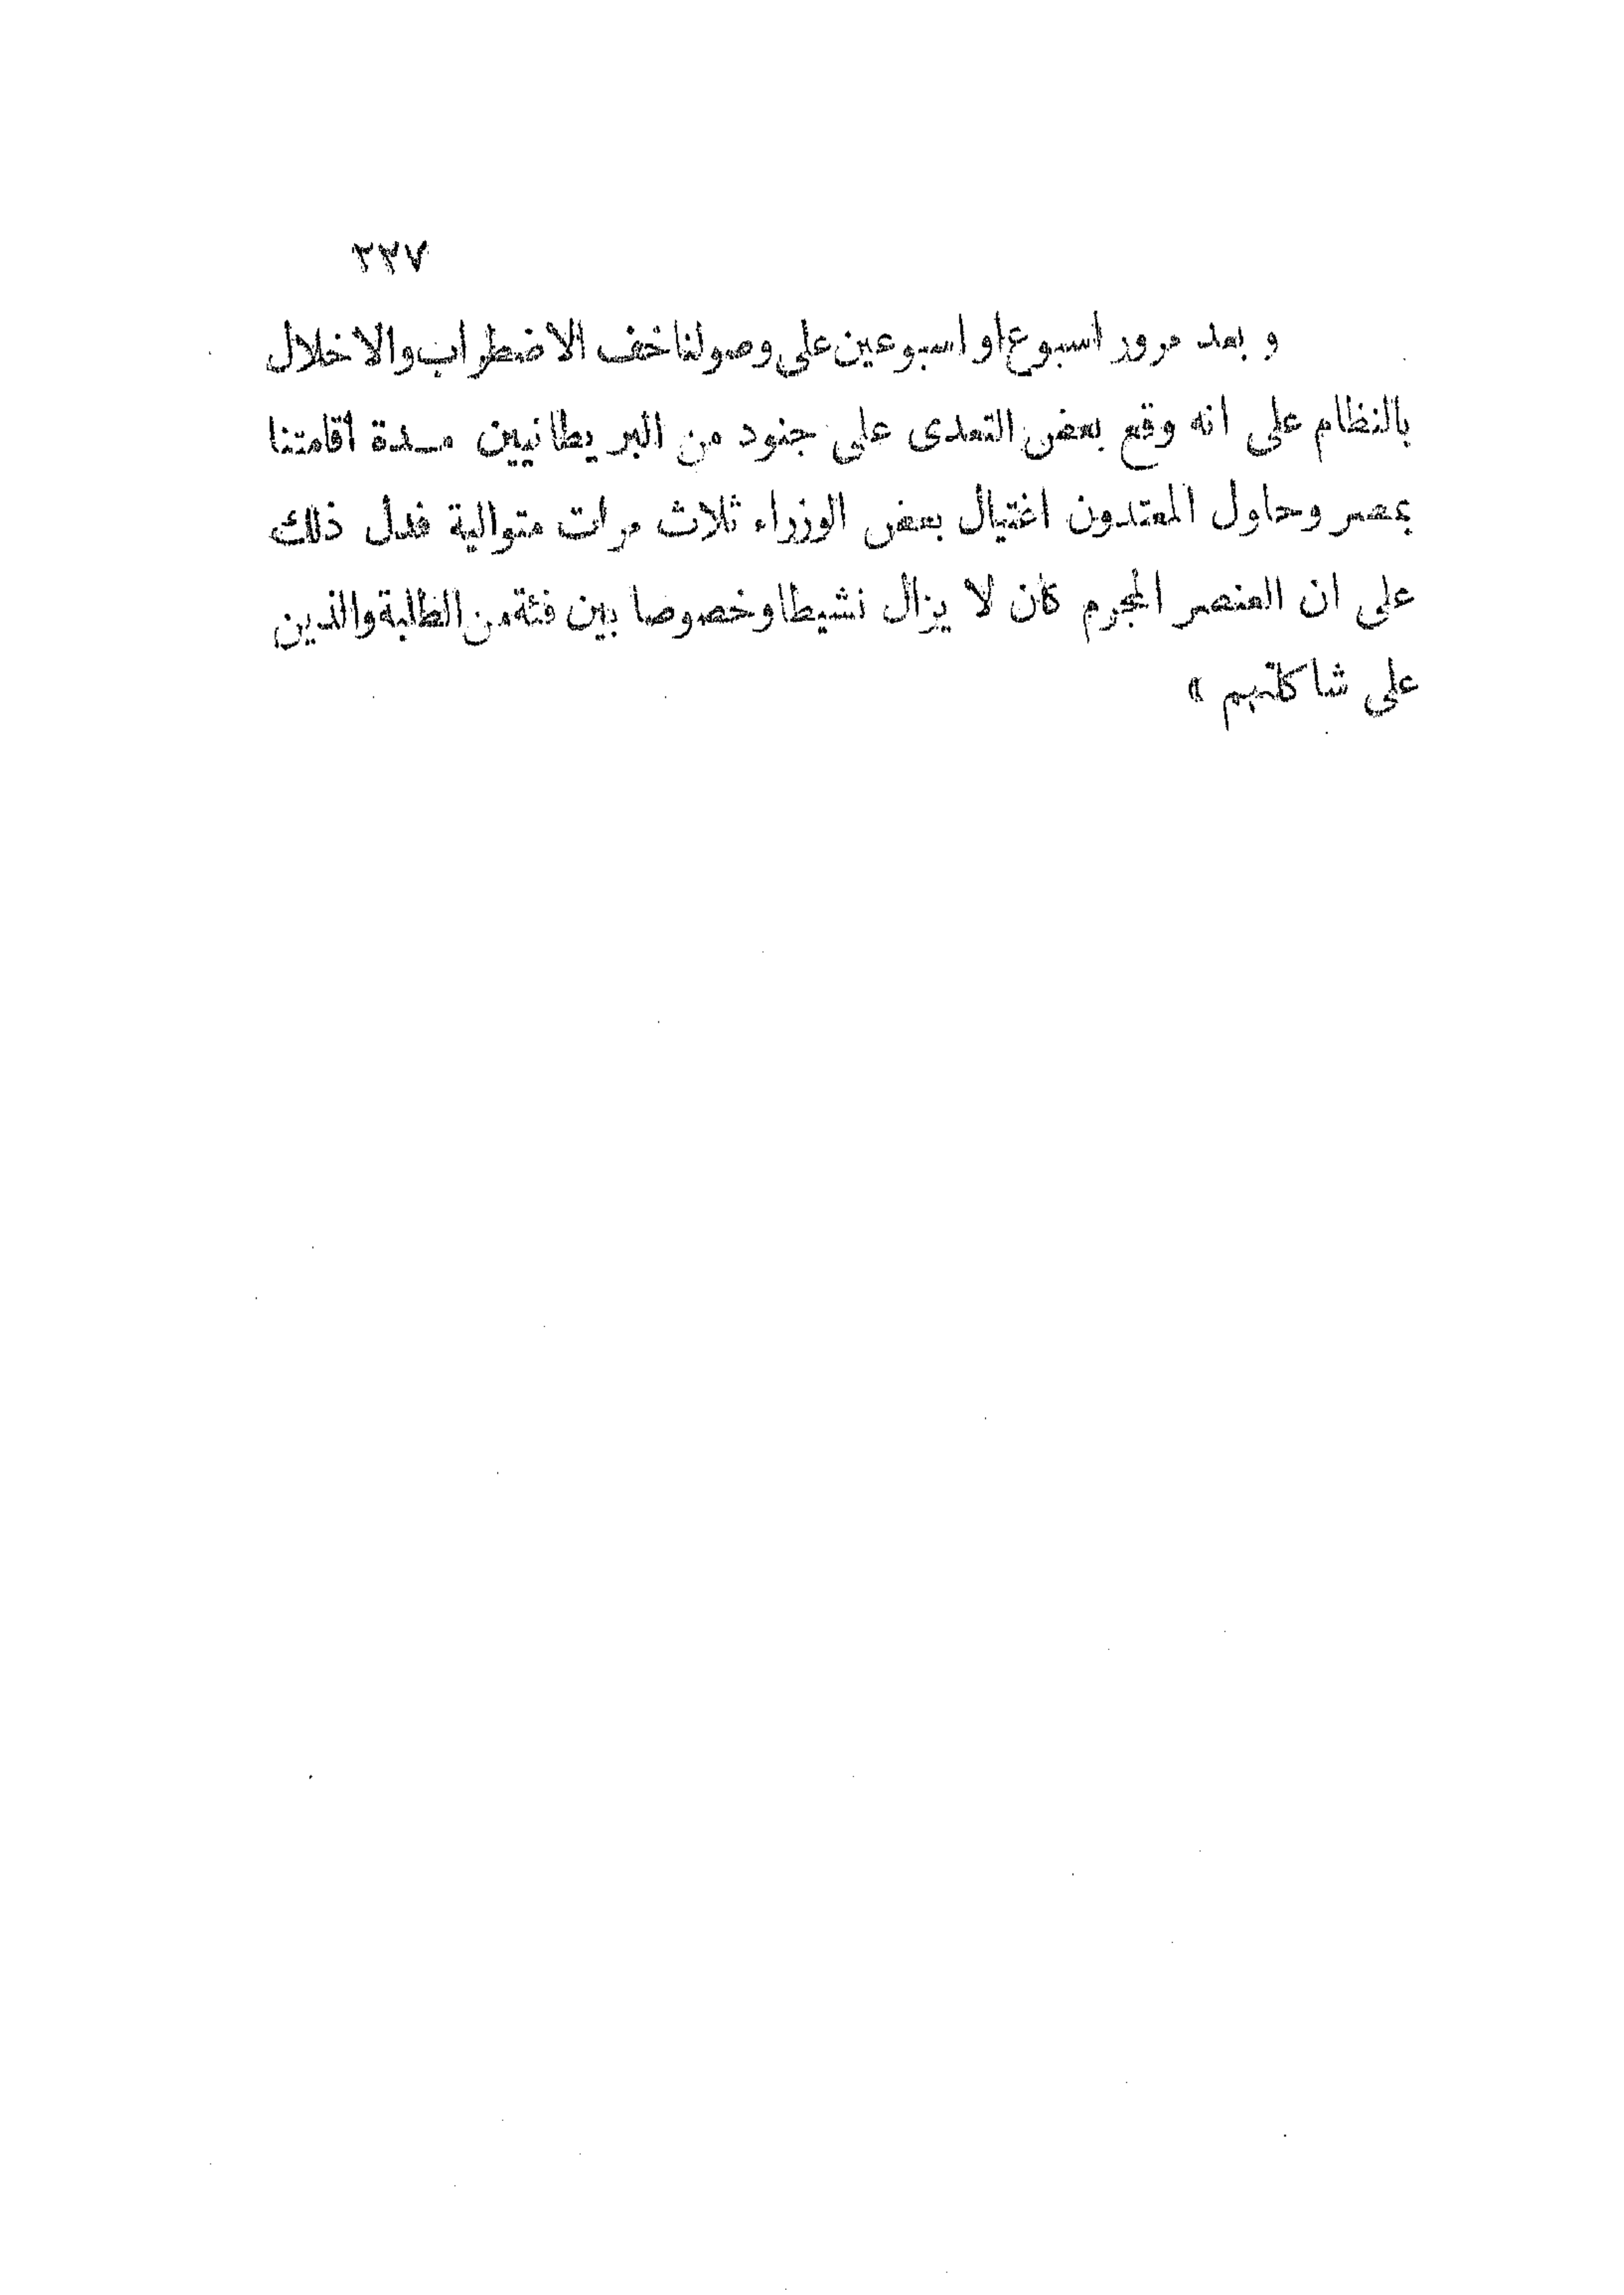 ٢٢٧
و بعد مرور اسبوع او اسبوعين على وصولنا خف الاضطراب والاخلال
بالنظام على انه وقع بعض التعدى على جنود من البريطانيين مدة اقامتنا
بمصر وحاول المعتدون اغتيال بعض الوزراء ثلاث مرات متوالية فدل ذلك
على ان العنصر المجرم كان لا يزال نشيطا وخصوصا بين فئة من الطلبة والذين
على شاكلتهم »